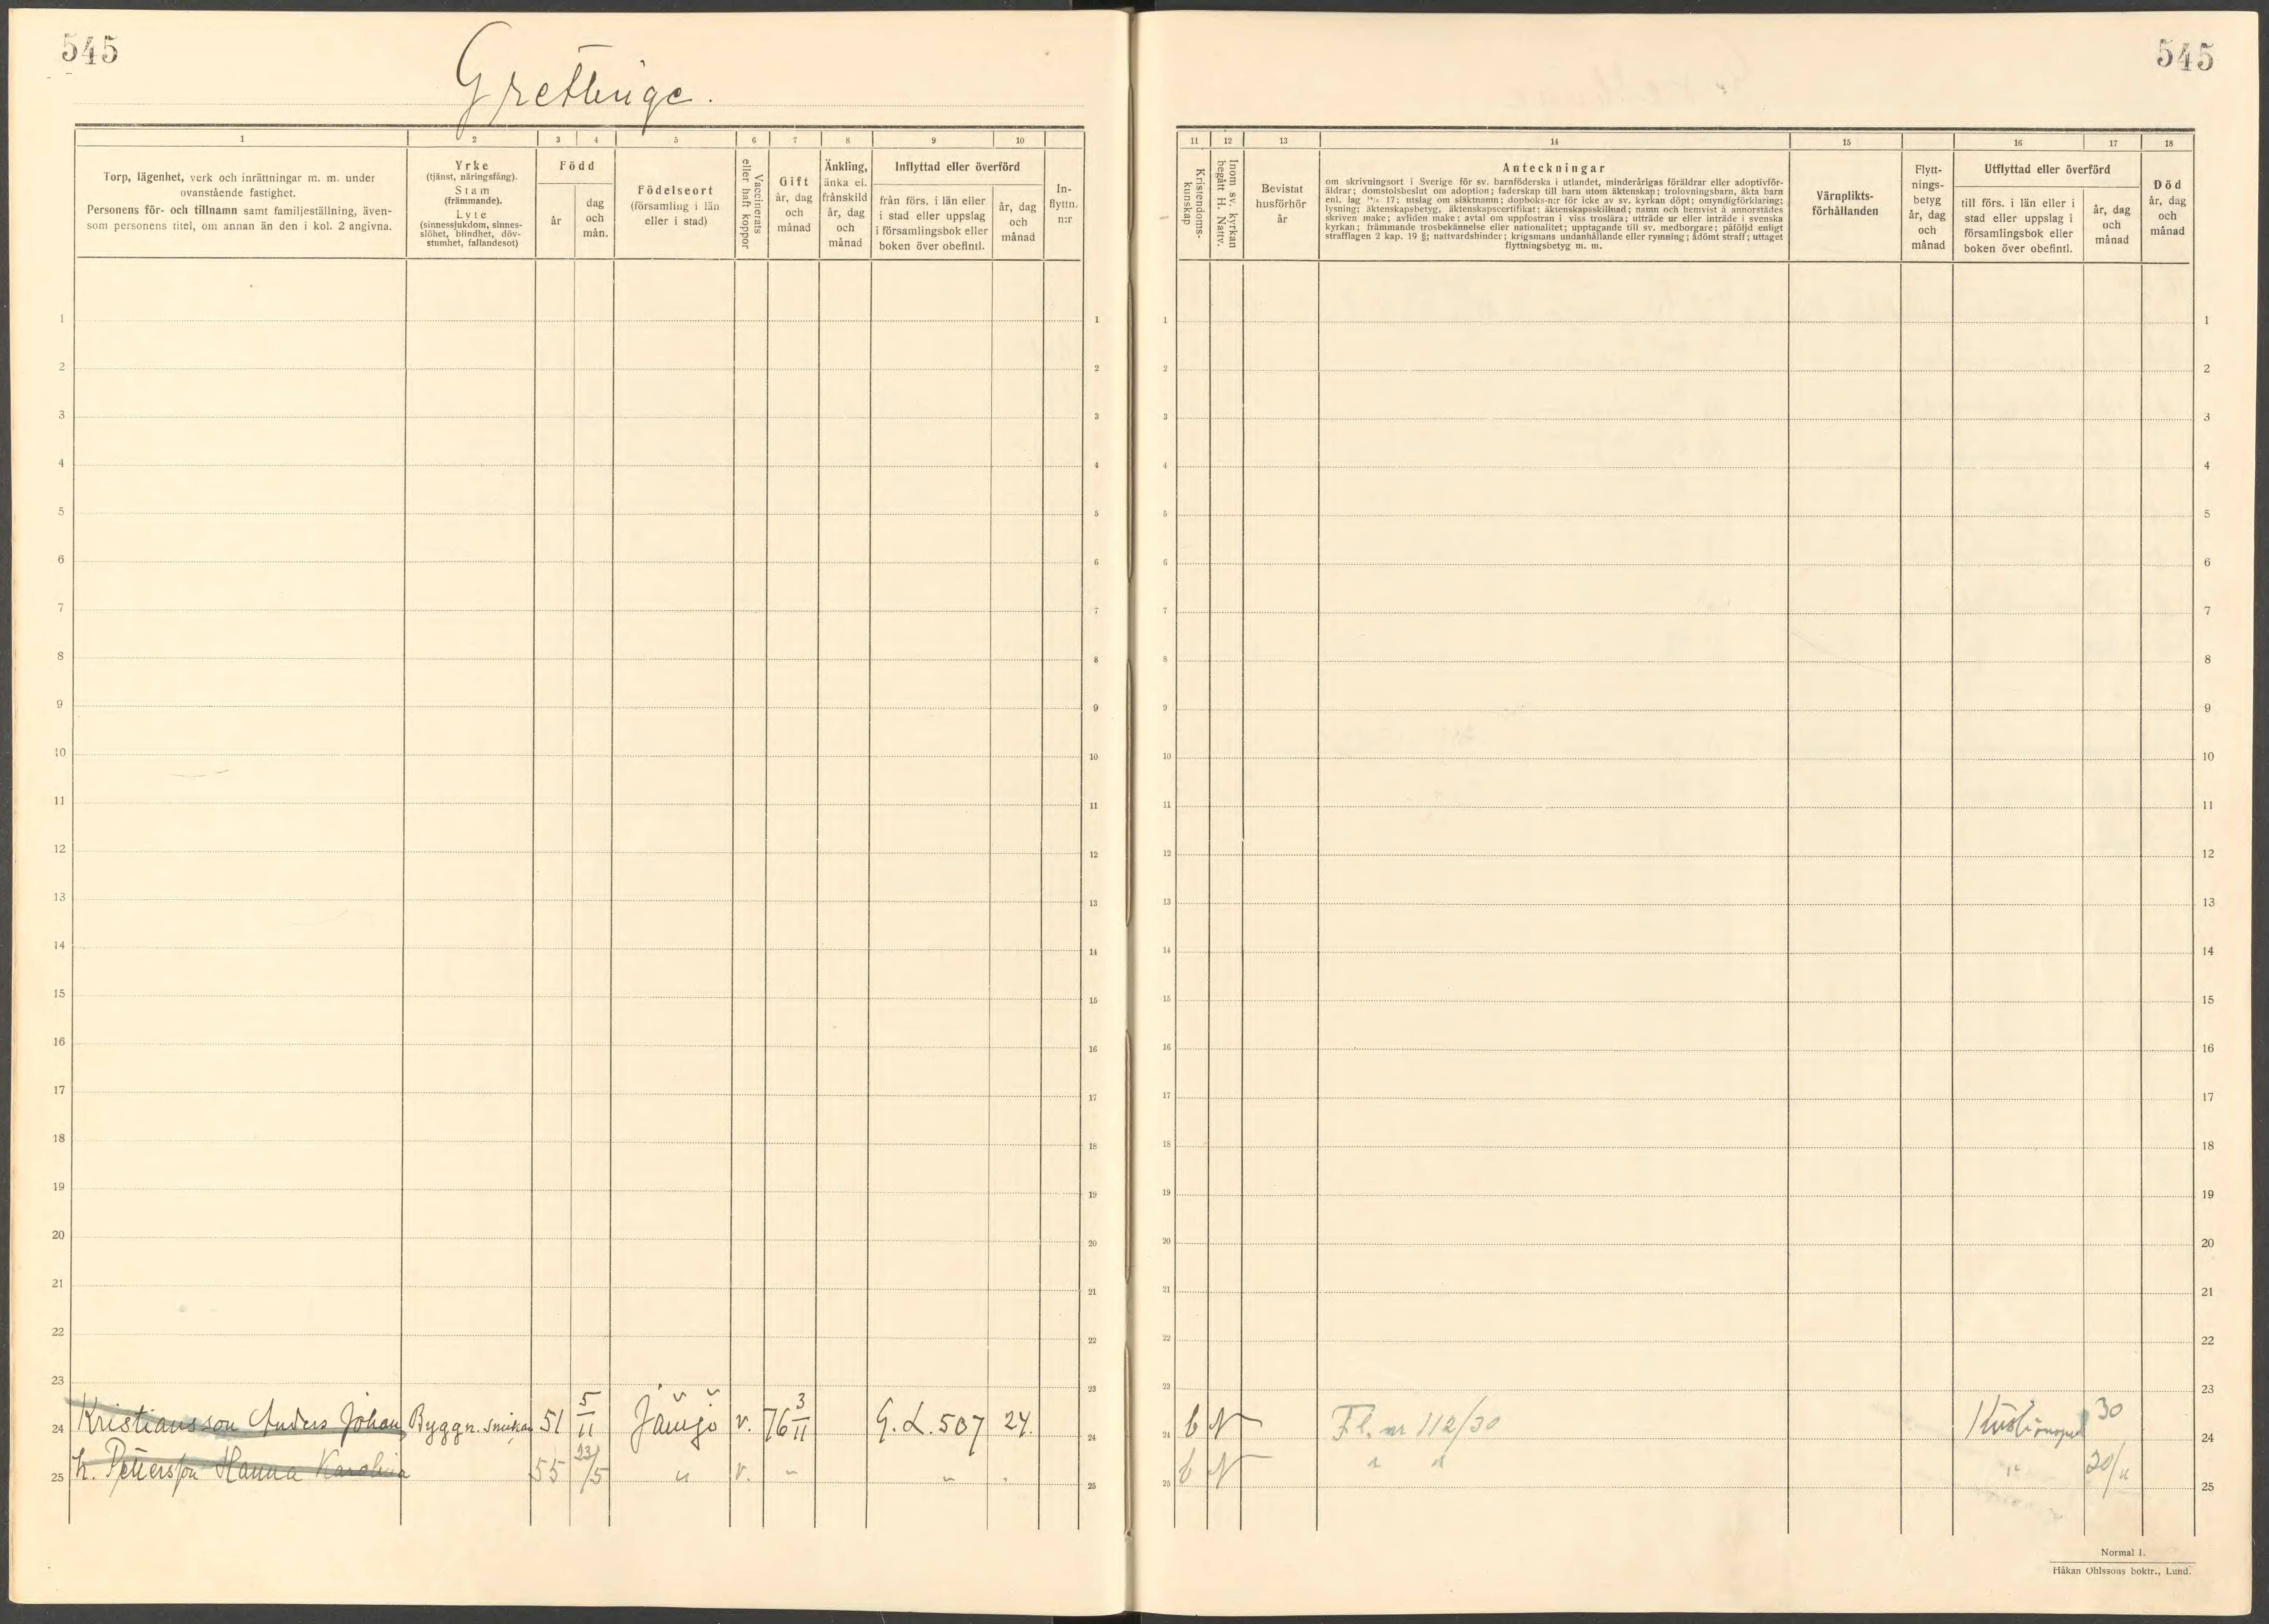 545
Grettinge.
1 2 3 4 5 6 7 8 9 10
Torp, lägenhet, verk och inrättningar m. m. under
ovanstående fastighet.
Personens för- och tillnamn samt familjeställning, även-
som personens titel, om annan än den i kol. 2 angivna.
Yrke
(tjänst, näringsfång).
Stam
(främmande).
Lyte
(sinnessjukdom, sinnes-
slöhet, blindhet, döv-
stumhet, fallandesot)
Född
år
dag
och
mån.
Födelseort
(församling i län
eller i stad)
Vaccinerats
eller haft koppor
Gift
år, dag
och
månad
Änkling,
änka el.
frånskild
år, dag
och
månad
Inflyttad eller överförd
från förs. i län eller
i stad eller uppslag
i församlingsbok eller
boken över obefintl.
år, dag
och
månad
In-
flyttn.
n:r
1 1
2 2
3 3
4 4
5 5
6 6
7 7
8 8
9 9
10 10
11 11
12 12
13 13
14 14
15 15
16 16
17 17
18 18
19 19
20 20
21 21
22 22
23 23
24 Kristiansson Anders Johan Byggn. snickar 51 5/11 Jämjö v. 76 3/11 G. L. 507 24. 24
25 h. Pettersson Hanna Karolina 55 23/5 " v. " " 25
545
11 12 13 14 15 16 17 18
Kristendoms-
kunskap
Inom sv. kyrkan
begått H. Nattv.
Bevistat
husförhör
år
Anteckningar
om skrivningsort i Sverige för sv. barnföderska i utlandet, minderårigas föräldrar eller adoptivför-
äldrar; domstolsbeslut om adoption; faderskap till barn utom äktenskap; trolovningsbarn, äkta barn
enl. lag 17; utslag om släktnamn; dopboks-n:r för icke av sv. kyrkan döpt; omyndigförklaring;
lysning; äktenskapsbetyg, äktenskapscertifikat; äktenskapsskillnad; namn och hemvist å annorstädes
skriven make; avliden make; avtal om uppfostran i viss troslära; utträde ur eller inträde i svenska
kyrkan; främmande trosbekännelse eller nationalitet; upptagande till sv. medborgare; påföljd enligt
strafflagen 2 kap. 19 §; nattvardshinder; krigsmans undanhållande eller rymning; ådömt straff; uttaget
flyttningsbetyg m. m.
Värnplikts-
förhållanden
Flytt-
nings-
betyg
år, dag
och
månad
Utflyttad eller överförd
till förs. i län eller i
stad eller uppslag i
församlingsbok eller
boken över obefintl.
år, dag
och
månad
Död
år, dag
och
månad
1 1
2 2
3 3
4 4
5 5
6 6
7 7
8 8
9 9
10 10
11 11
12 12
13 13
14 14
15 15
16 16
17 17
18 18
19 19
20 20
21 21
22 22
23 23
24 b N Fl. nr 112/30 Kristianopel 30 24
25 b N " " " 20/11 25
Normal 1.
Håkan Ohlssons boktr., Lund.